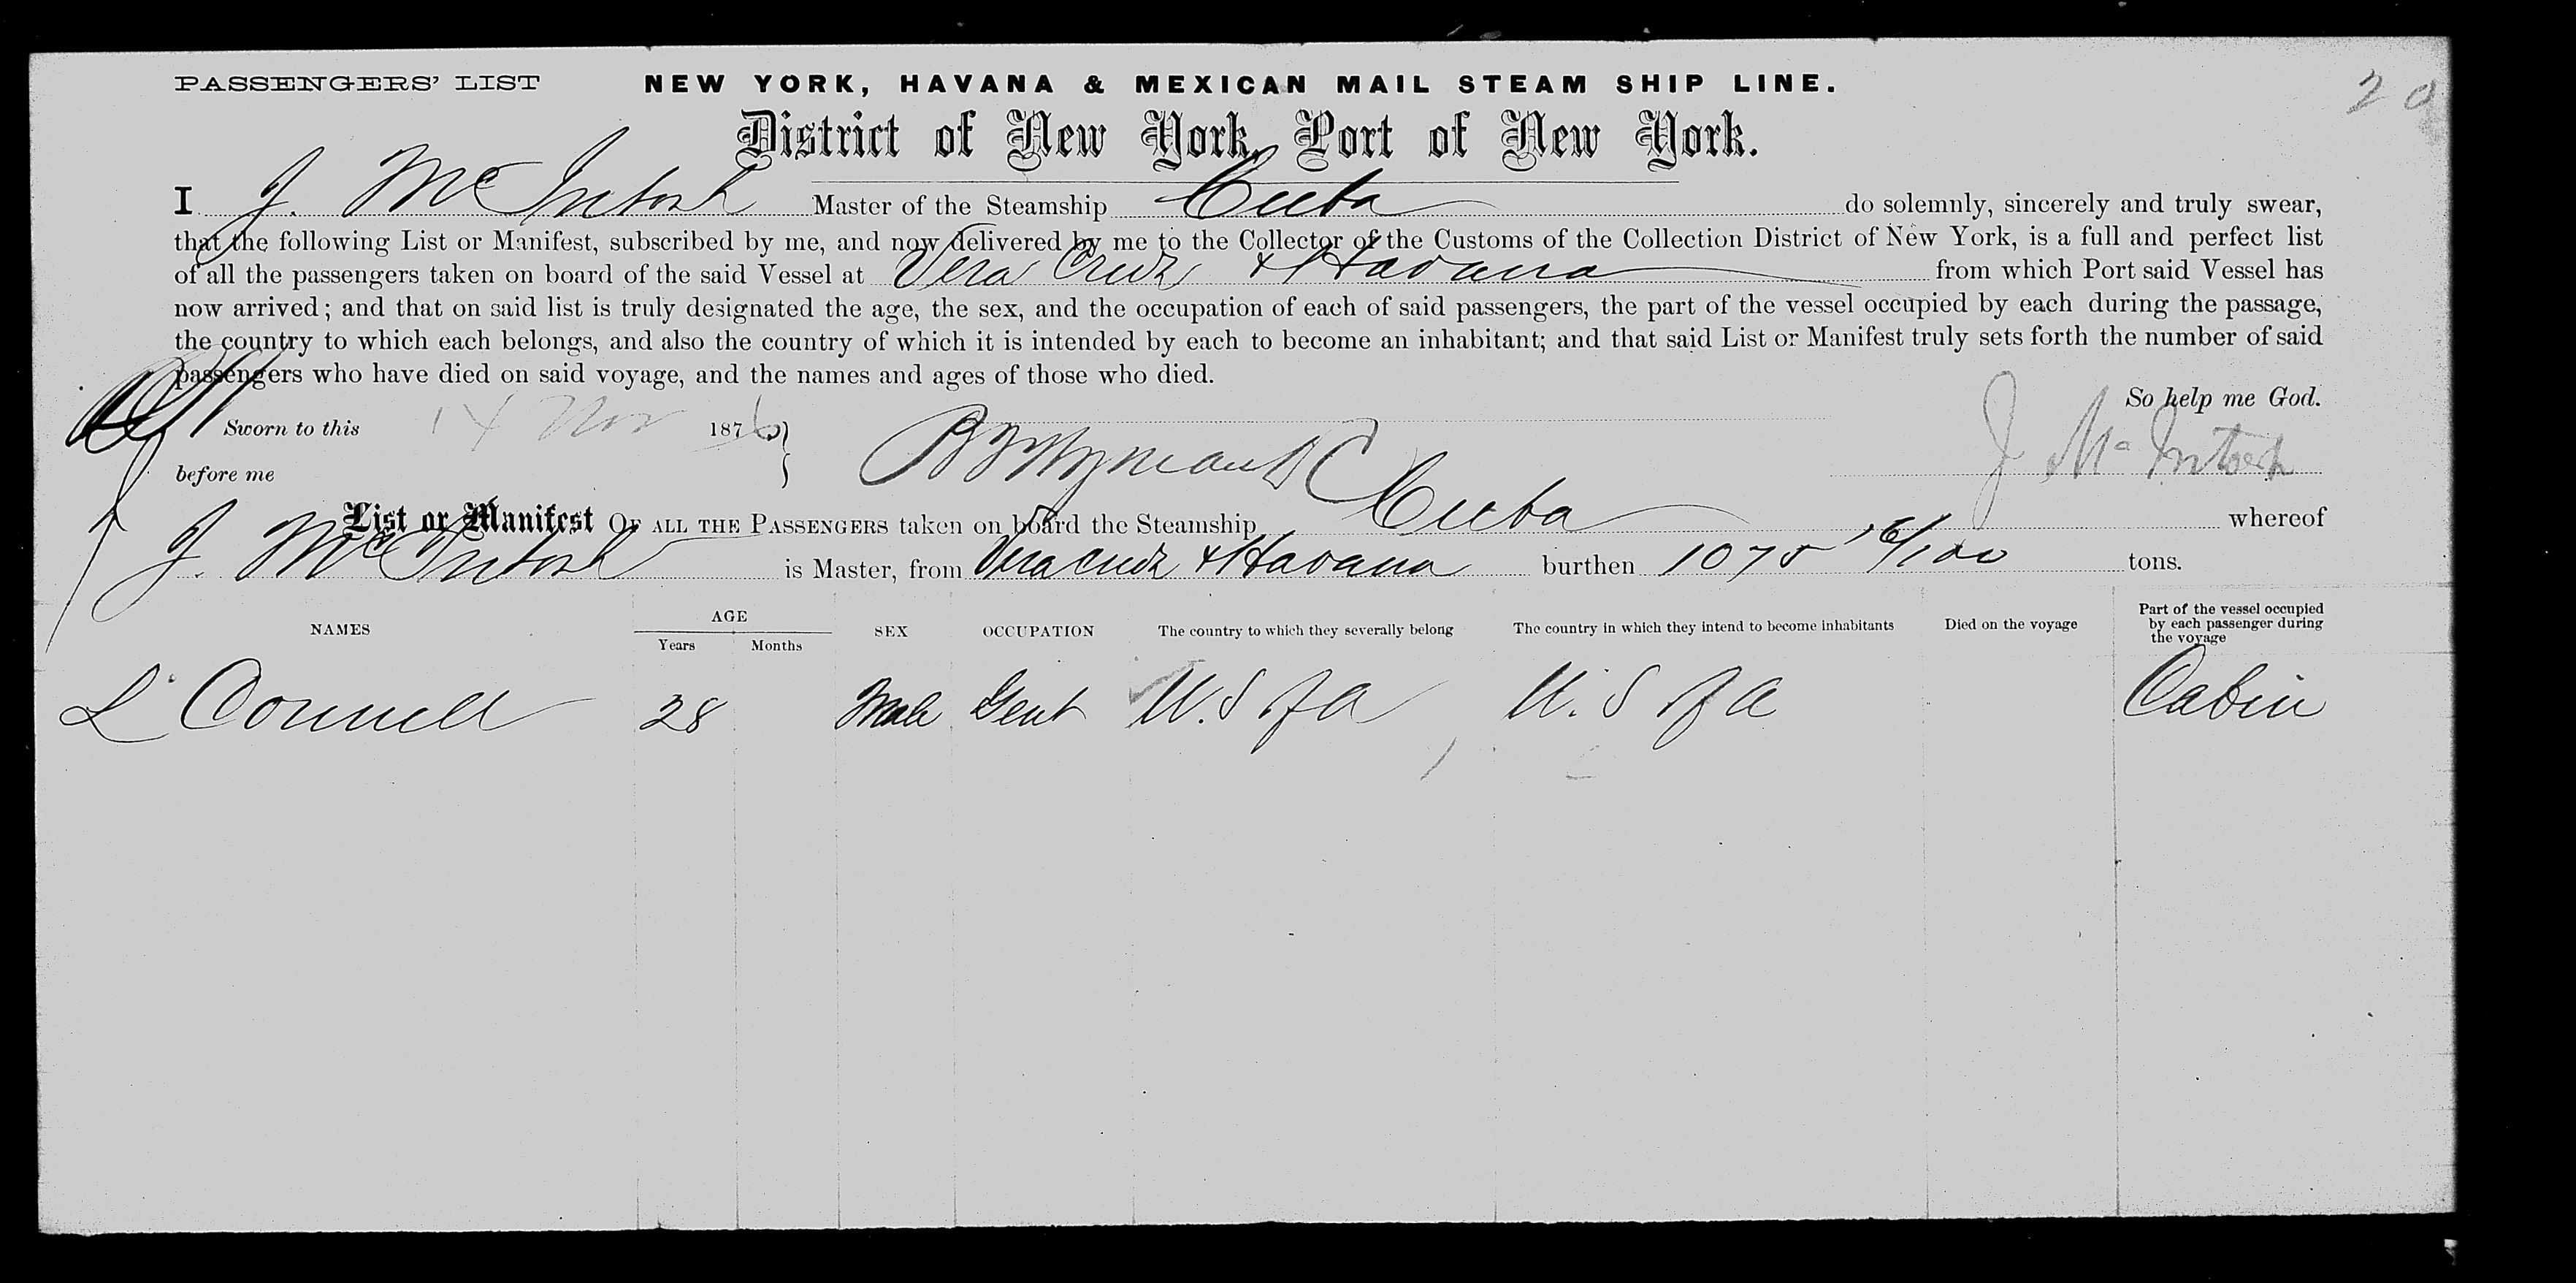 PASSENGERS' LIST NEW YORK, HAVANA & MEXICAN MAIL STEAM SHIP LINE.
20
District of New York, Port of New York.
I J. McIntosh Master of the Steamship Cuba do solemnly, sincerely and truly swear,
that the following List or Manifest, subscribed by me, and now delivered by me to the Collector of the Customs of the Collection District of New York, is a full and perfect list
of all the passengers taken on board of the said Vessel at Vera Cruz & Havana from which Port said Vessel has
now arrived; and that on said list is truly designated the age, the sex, and the occupation of each of said passengers, the part of the vessel occupied by each during the passage,
the country to which each belongs, and also the country of which it is intended by each to become an inhabitant; and that said List or Manifest truly sets forth the number of said
passengers who have died on said voyage, and the names and ages of those who died.
So help me God.
Sworn to this 14 Nov 1876
before me J McIntosh
List or Manifest OF ALL THE PASSENGERS taken on board the Steamship Cuba whereof
J. McIntosh is Master, from Vera Cruz & Havana burthen 1075 16/100 tons.
NAMES AGE Years Months SEX OCCUPATION The country to which they severally belong The country in which they intend to become inhabitants Died on the voyage Part of the vessel occupied by each passenger during the voyage
L Connell 28 Male Gent U.S of A U.S of A Cabin